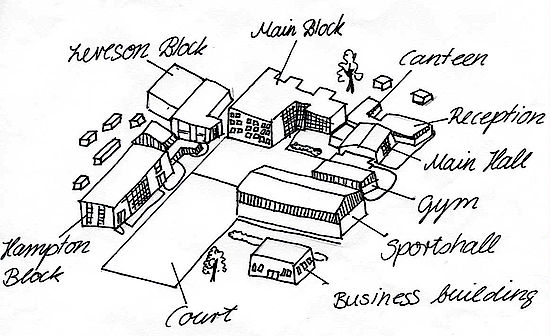 Leveson Block
Main Block
Canteen
Reception
Main Hall
Gym
Sportshall
Business building
Court
Hampton
Block